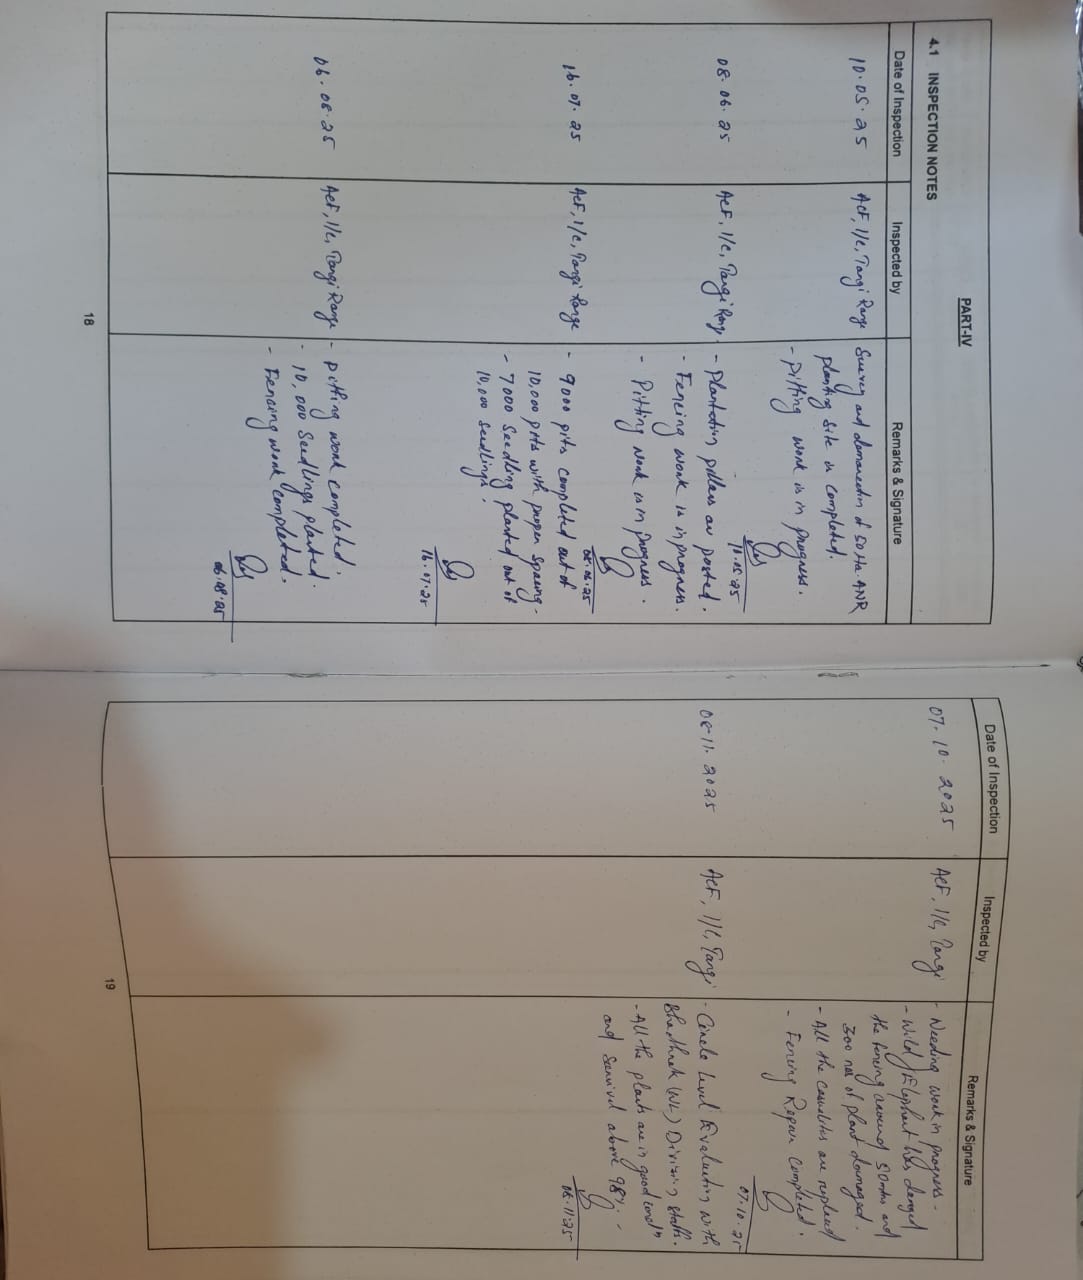 PART-IV
4.1 INSPECTION NOTES
Date of Inspection Inspected by Remarks & Signature
10.05.25 ACF, I/C, Tangi Range Survey and demarcation of 50 Ha. ANR
planting site is completed.
- Pitting work is in progress.
10.05.25
08.06.25 ACF, I/C, Tangi Range. - Plantation pillars are posted.
- Fencing work is in progress.
- Pitting work is in progress.
08.06.25
16.07.25 ACF, I/C, Tangi Range - 9000 pits completed out of
10,000 pits with proper spacing.
- 7000 seedling planted out of
10,000 seedlings.
16.07.25
06.08.25 ACF, I/C, Tangi Range - Pitting work completed.
- 10,000 seedlings planted.
- Fencing work completed.
06.08.25
18
Date of Inspection Inspected by Remarks & Signature
07.10.2025 ACF, I/C, Tangi - Weeding work in progress.
- Wild Elephant has damged
the fencing around 50 mtrs and
300 nos of plant damaged.
- All the casualties are replaced
- Fencing Repair completed.
07.10.25
08.11.2025 ACF, I/C, Tangi - Circle Level Evaluation with
Bhadrak (WL) Division staffs.
- All the plants are in good condn
and survival above 98%.
08.11.25
19